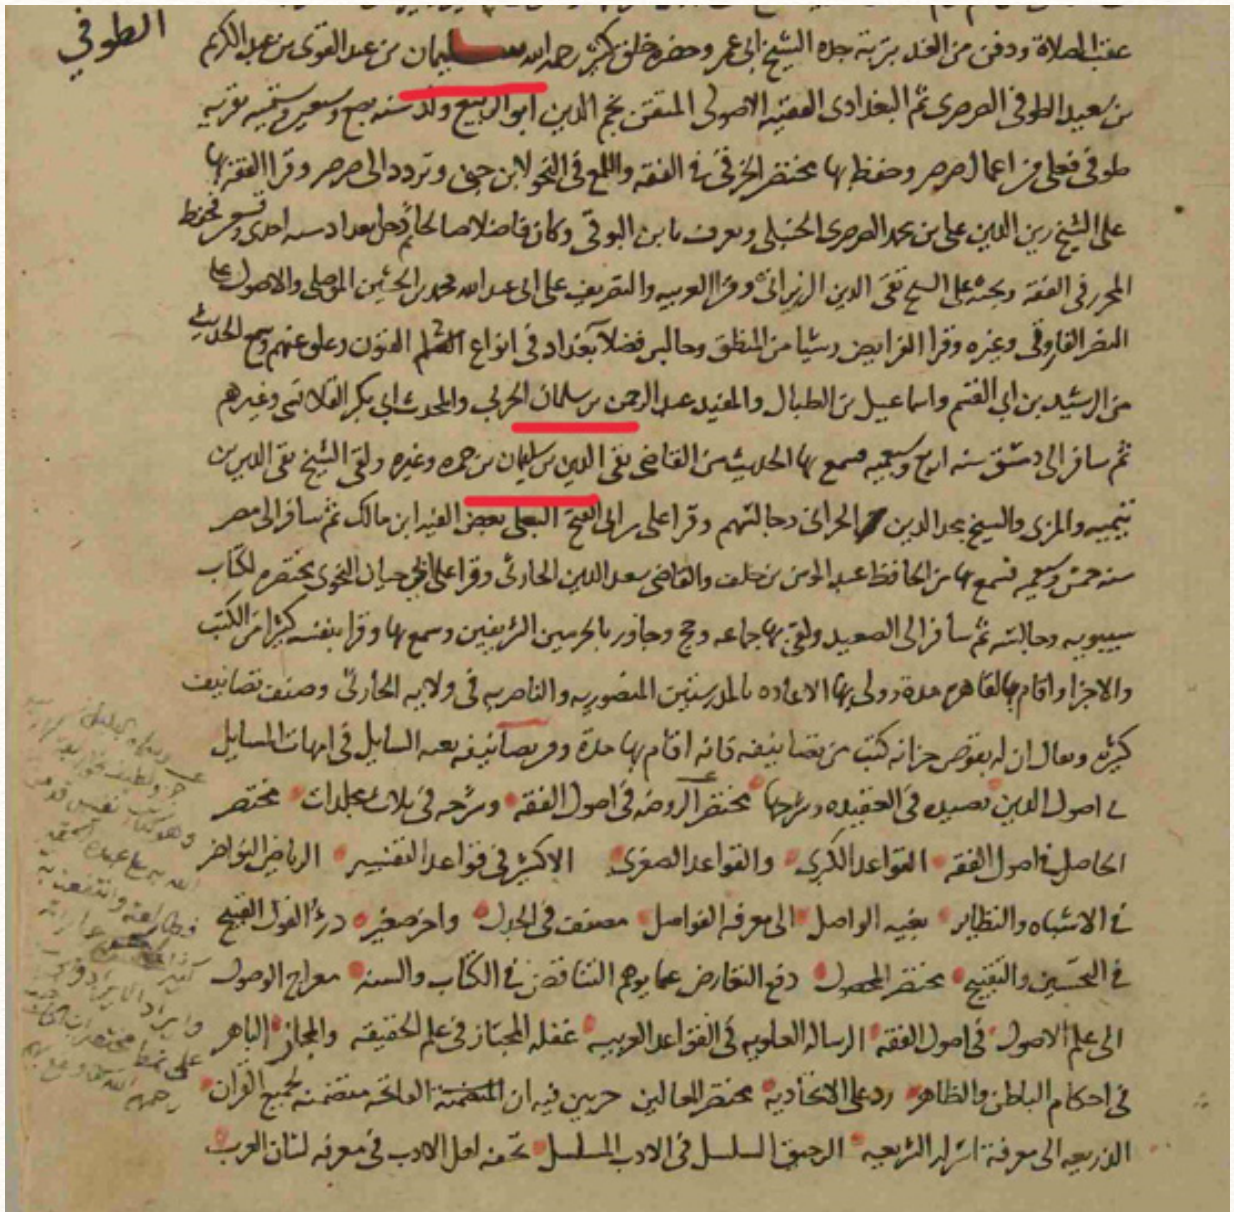 الطوفي
عقب الصلاة ودفن من الغد بتربة جده الشيخ ابى عمر وحضره خلق كثير رحمه الله سليمان بن عبد القوى بن عبد الكريم
بن سعيد الطوفى الصرصرى ثم البغدادى الفقيه الاصولى المتفنن نجم الدين ابو الربيع ولد سنة بضع وسبعين وستميه بقريه
طوفى من اعمال صرصر وحفظ بها مختصر الخرقى فى الفقه واللمع فى النحو لابن جنى وتردد الى صرصر وقرا الفقه بها
على الشيخ زين الدين على بن محمد الصرصرى الحنبلى ويعرف بابن البوقى وكان فاضلا صالحا ثم دخل بغداد سنه احدى وتسعين فحفظ
المحرر فى الفقه وبحثه على الشيخ تقى الدين الزريراتى وقرا العربيه والتصريف على ابى عبد الله محمد بن الحسين الموصلى والاصول على
النصر الفاروقى وغيره وقرا الفرايض وشيا من المنطق وجالس فضلا بغداد فى انواع الفنون وعلق عنهم وسمع الحديث
من الرشيد بن ابى القسم واسماعيل بن الطبال والمفيد عبد الرحمن بن سلمان الحربى والمحدث ابى بكر القلانسى وغيرهم
ثم سافر الى دمشق سنه اربع وسبعميه فسمع بها الحديث من القاضى تقى الدين بن سليمان بن حمزه وغيره ولقى الشيخ تقى الدين بن
تيميه والمزى والشيخ مجد الدين الحرانى وجالسهم وقرا على بن ابى الفتح البعلى بعض الفيه ابن مالك ثم سافر الى مصر
سنه خمس وسبعميه فسمع بها من الحافظ عبد المومن بن خلف والقاضى سعد الدين الحارثى وقرا على ابى حيان النحوى مختصره لكتاب
سيبويه وجالسه ثم سافر الى الصعيد ولقى بها جماعه وحج وجاور بالحرمين الشريفين وسمع بها وقرا بنفسه كثيرا من الكتب
والاجزا واقام بالقاهره مدة وولى بها الاعاده بالمدرستين المنصوريه والناصريه فى ولايه الحارثى وصنف تصانيف
كثيره ويقال ان له بقوص خزانه كتب من تصانيفه فانه اقام بها مدة ومن تصانيفه بغيه السايل فى امهات المسايل
فى اصول الدين قصيده فى العقيده وشرحها مختصر الروضه فى اصول الفقه وشرحه فى ثلاث مجلدات مختصر
الحاصل فى اصول الفقه القواعد الكبرى والقواعد الصغرى الاكسير فى قواعد التفسير الرياض النواضر
فى الاشباه والنظاير بغيه الواصل الى معرفه الفواصل مصنف فى الجدل واخر صغير درء القول القبيح
فى التحسين والتقبيح مختصر المحصول دفع التعارض عما يوهم التناقض فى الكتاب والسنه معراج الوصول
الى علم الاصول فى اصول الفقه الرساله العلويه فى القواعد العربيه غفله المجتاز فى علم الحقيقه والمجاز الباهر
فى احكام الباطن والظاهر رد على الاتحاديه مختصر المعالين جزيين فيه ان الفاتحه متضمنه لجميع القران
الذريعه الى معرفة اسرار الشريعه الرحيق السلسل فى الادب المسلسل تحفه اهل الادب فى معرفه لسان العرب